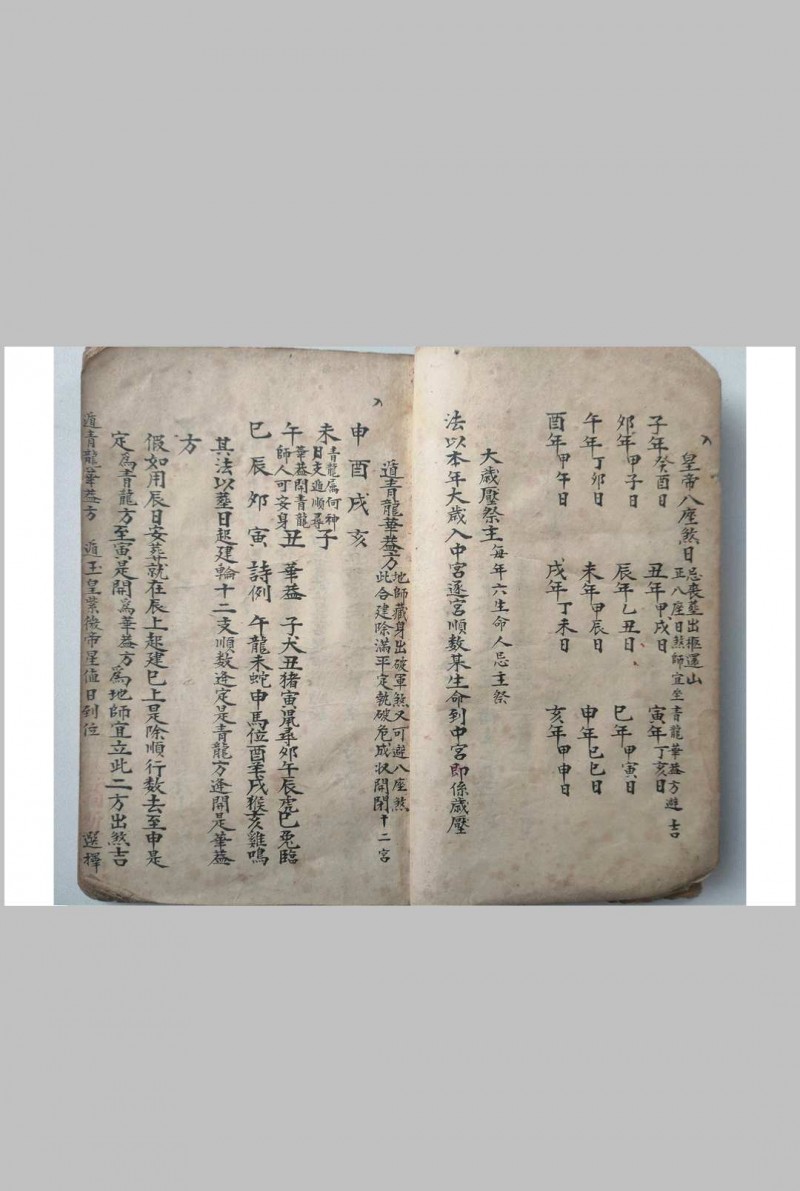 皇帝八座煞日 忌丧塟出柩還山
正八座日煞師宜坐青龍華盖方避吉
子年癸酉日 丑年甲戌日 寅年丁亥日
夘年甲子日 辰年乙丑日 巳年甲寅日
午年丁夘日 未年甲辰日 申年己巳日
酉年甲午日 戌年丁未日 亥年甲申日
大歲壓祭主 每年六生命人忌主祭
法以本年大歲入中宮逐宮順数某生命到中宮即係歲壓
遁青龍華盖方 地師藏身出破軍煞又可避八座煞
此合建除滿平定執破危成収開閉十二宮
申酉戌亥
未 青龍属何神 日支遁順尋 子
午 華盖開青龍 師人可安身 丑 華盖 子犬丑猪寅鼠尋夘午辰虎巳兎臨
巳辰夘寅 詩例 午龍未蛇申馬位酉羊戌猴亥雞鳴
其法以塟日起建輪十二支順数逢定是青龍方逢開是華盖
方
假如用辰日安葬就在辰上起建巳上是除順行数去至申是
定為青龍方至寅是開為華盖方為地師宜立此二方出煞吉
遁青龍華盖方 遁玉皇紫微帝星值日到位 選擇